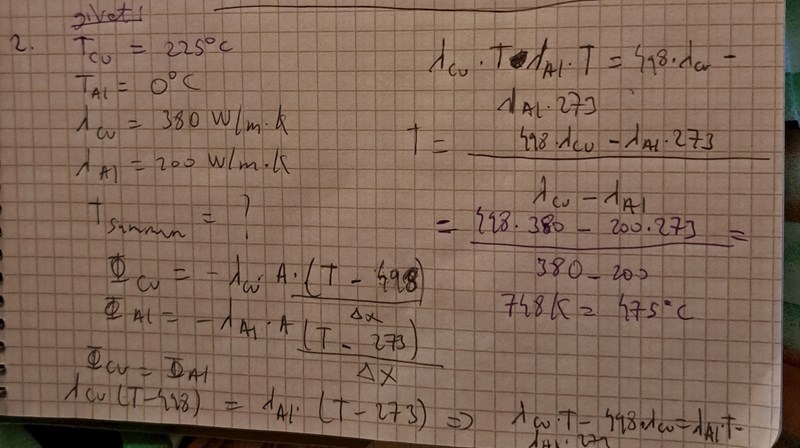 givet:
2.
T_Cu = 225°C
T_Al = 0°C
λ_Cu = 380 W/m·K
λ_Al = 200 W/m·K
= ?
Φ_Cu = -λ_Cu·A·(T - 498)
Δx
Φ_Al = -λ_Al·A (T - 273)
Δx
Φ_Cu = Φ_Al
λ_Cu (T-498) = λ_Al·(T-273) =>
λ_Cu·T - 498·λ_Cu = λ_Al·T -
λ_Al·273
λ_Cu·T λ_Al·T = 498·λ_Cu -
λ_Al·273
T = 498·λ_Cu - λ_Al·273
λ_Cu - λ_Al
= 498·380 - 200·273 =
380-200
748K = 475°C